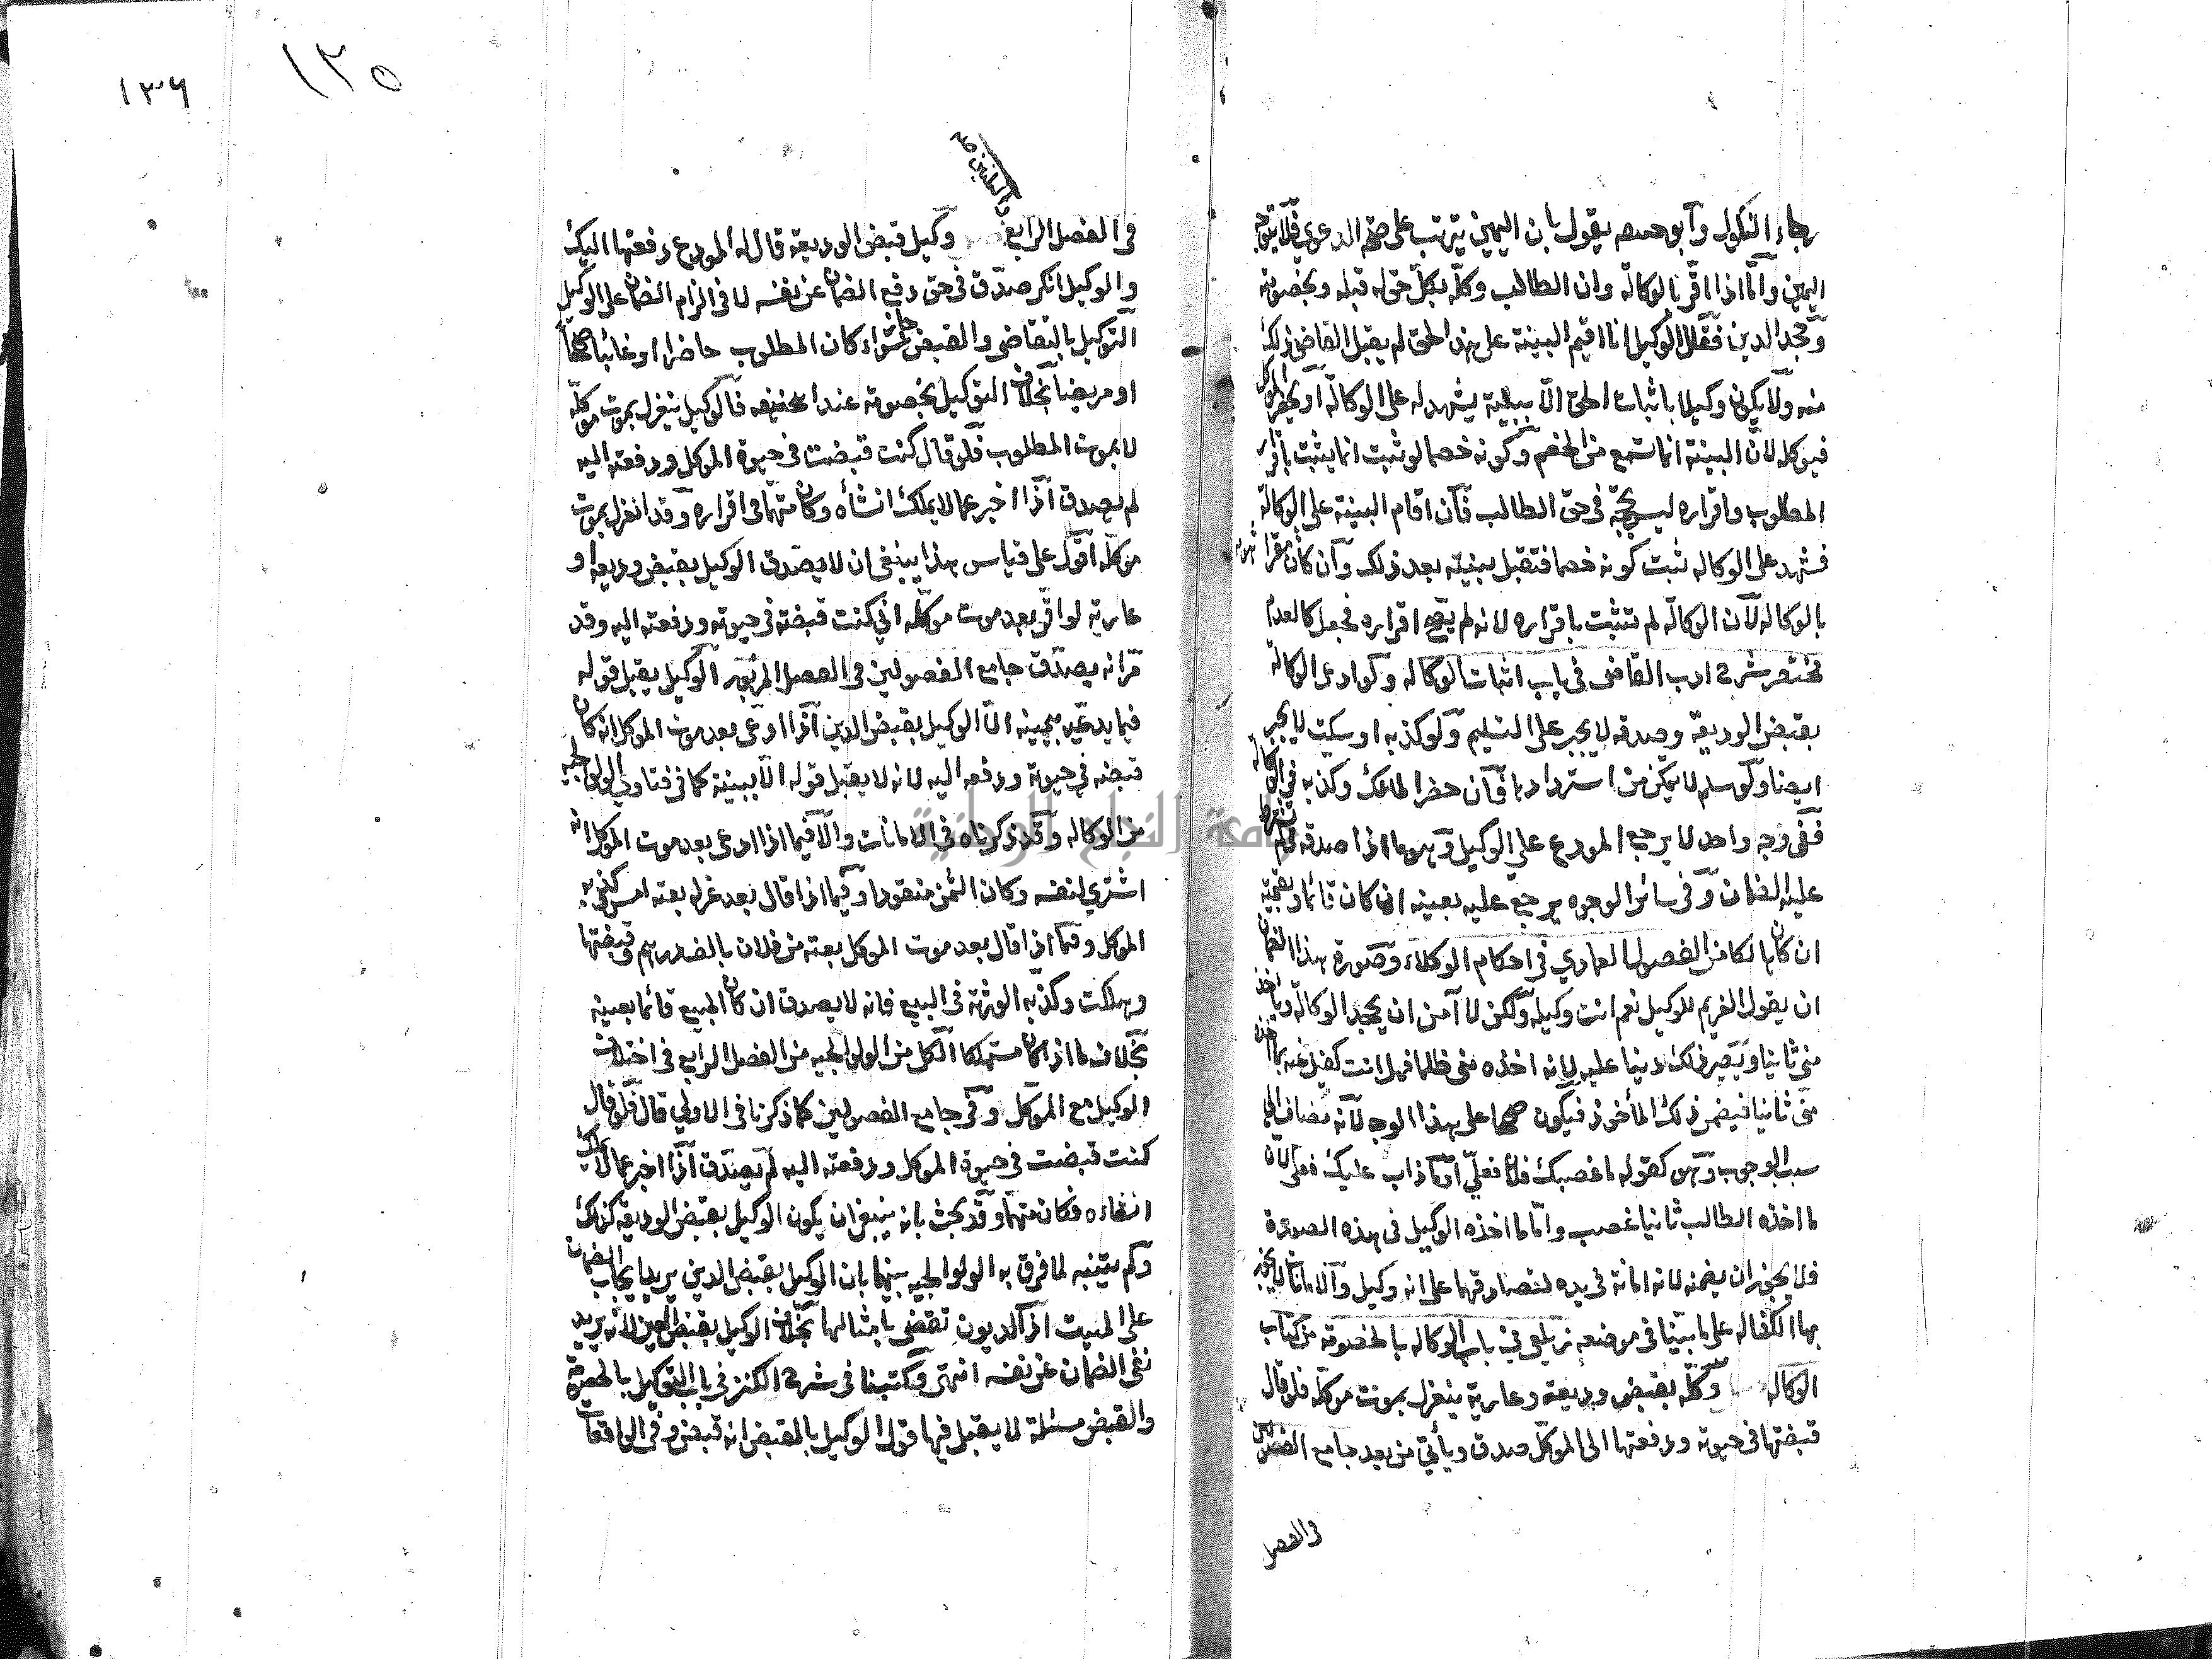 رجاء النكول وابو حنيفه يقول بان اليمين يترتب على صحة الدعوى فلا يتوجه
اليمين واما اذا اقر بالوكالة وان الطالب وكله بكل حق له قبله وبخصومته
وجحد الدين فقال الوكيل انا اقيم البينة على هذا الحق لم يقبل القاضى ذلك
منه ولا يكون وكيلا باثبات الحق الا ببينة يشهد له على الوكالة او يحضر الموكل
فيوكله لان البينة انما تسمع من الخصم وكونه خصما لو ثبت انما يثبت باقرار
المطلوب واقراره ليس بحجة فى حق الطالب فان اقام البينة على الوكالة
فشهد على الوكاله ثبت كونه خصما فتقبل بينته بعد ذلك وان كان مقرا
بالوكاله لان الوكالة لم تثبت باقراره لانه لم يصح اقراره فجعل كالعدم
مختصر شرح ادب القاضى فى باب اثبات الوكاله ولو ادعى الوكالة
بقبض الوديعة وصدقه لا يجبر على التسليم ولو كذبه او سكت لا يجبر
ايضا ولو سلم لا يتمكن من استردادها فان حضر المالك وكذبه فى الوكالة
ففى وجه واحد لا يرجع المودع على الوكيل وهو ما اذا صدقه ولم يشترط
عليه الضمان وفى سائر الوجوه يرجع عليه بعينه ان كان قائما وبقيمته
ان كان هالكا من الفصول العمادي فى احكام الوكلاء وصورة هذا الضمان
ان يقول الغريم للوكيل نعم انت وكيله ولكن لا آمن ان يجحد الوكالة ويأخذ
منى ثانيا ويصير ذلك دينا عليه لانه اخذه منى ظلما فهل انت كفيل عنه بما اخذه
منى ثانيا فيضمن ذلك المأخوذ فيكون صحيحا على هذا الوجه لانه مضاف الى
سبب الوجوب وهو كقوله ما غصبك فلان فعلي او ما ذاب عليك فعلى لان
ما اخذه الطالب ثانيا غصب واما ما اخذه الوكيل فى هذه الصورة
فلا يجوز ان يضمنه لانه امانة فى يده لتصادقهما على انه وكيل والامانات لا يجوز
بها الكفاله على ما بينا فى موضعه زيلعى فى باب الوكاله بالخصومة من كتاب
الوكاله وكله بقبض وديعة وعارية ينعزل بموت موكله فلو قال
قبضتها فى حيوته ودفعتها الى الموكل صدق ويأتى من بعد جامع الفصولين
فى الفصل
١٣٥
١٣٦
فى الفصل الرابع وكيل قبض الوديعة قال له المودع دفعتها اليك
والوكيل انكر صدق فى حق دفع الضمان عن نفسه لا فى الزام الضمان على الوكيل
التوكيل بالتقاضى والقبض جائز سواء كان المطلوب حاضرا او غائبا صحيحا
او مريضا بخلاف التوكيل بخصومة عند ابى حنيفه فالوكيل ينعزل بموت موكله
لا بموت المطلوب فلو قال كنت قبضت فى حيوة الموكل ودفعته اليه
لم يصدق اذا اخبر عما لا يملك انشأه وكان متهما فى اقراره وقد انعزل بموت
موكله اقول على قياس هذا ينبغى ان لا يصدق الوكيل بقبض وديعة او
عارية لو اقر بعد موت موكله انى كنت قبضته فى حيوته ودفعته اليه وقد
مر انه يصدق جامع الفصولين فى الفصل المزبور الوكيل يقبل قوله
فيما يدعيه بيمينه الا الوكيل بقبض الدين اذا ادعى بعد موت الموكل انه كان
قبضه فى حيوته ودفعه اليه لانه لا يقبل قوله الا ببينة كما فى فتاوى الولوالجيه
من الوكاله وقد ذكرناه فى الامانات والا فيما اذا ادعى بعد موت الموكل انه
اشترى لنفسه وكان الثمن منقودا وفيما اذا قال بعد عزله بعته امس وكذبه
الموكل وفيما اذا قال بعد موت الموكل بعته من فلان بالف درهم وقبضتها
وهلكت وكذبه الورثة فى البيع فانه لا يصدق ان كان المبيع قائما بعينه
بخلاف ما اذا كان مستهلكا الكل من الولوالجيه من الفصل الرابع فى اختلاف
الوكيل مع الموكل وفى جامع الفصولين كما ذكرنا فى الاولى قال فلو قال
كنت قبضت فى حيوة الموكل ودفعته اليه لم يصدق اذا اخبر عما لا يملك
انشاءه فكان متهما وقد بحث بانه ينبغى ان يكون الوكيل بقبض الوديعة كذلك
ولم يتنبه لما فرق به الولوالجيه بينهما بان الوكيل بقبض الدين يريد ايجاب الضمان
على الميت اذ الديون تقضى بامثالها بخلاف الوكيل بقبض العين لانه يريد
نفى الضمان عن نفسه انتهى وكتبنا فى شرح الكنز فى باب التوكيل بالخصومة
والقبض مسئلة لا يقبل فيها قول الوكيل بالقبض انه قبض وفى الواقعات